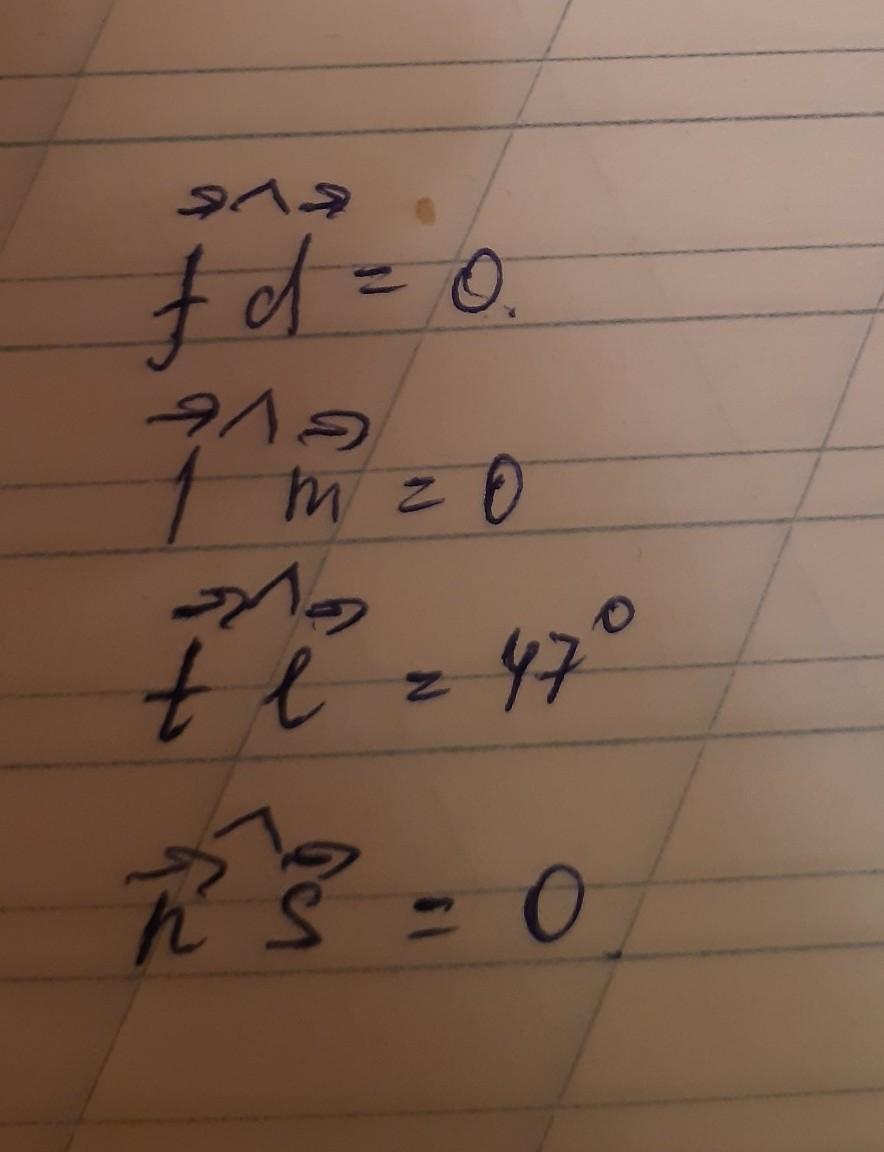 →∧→
f d = 0.
→∧→
l m = 0
→∧→
t l = 47°
→∧→
n s = 0.